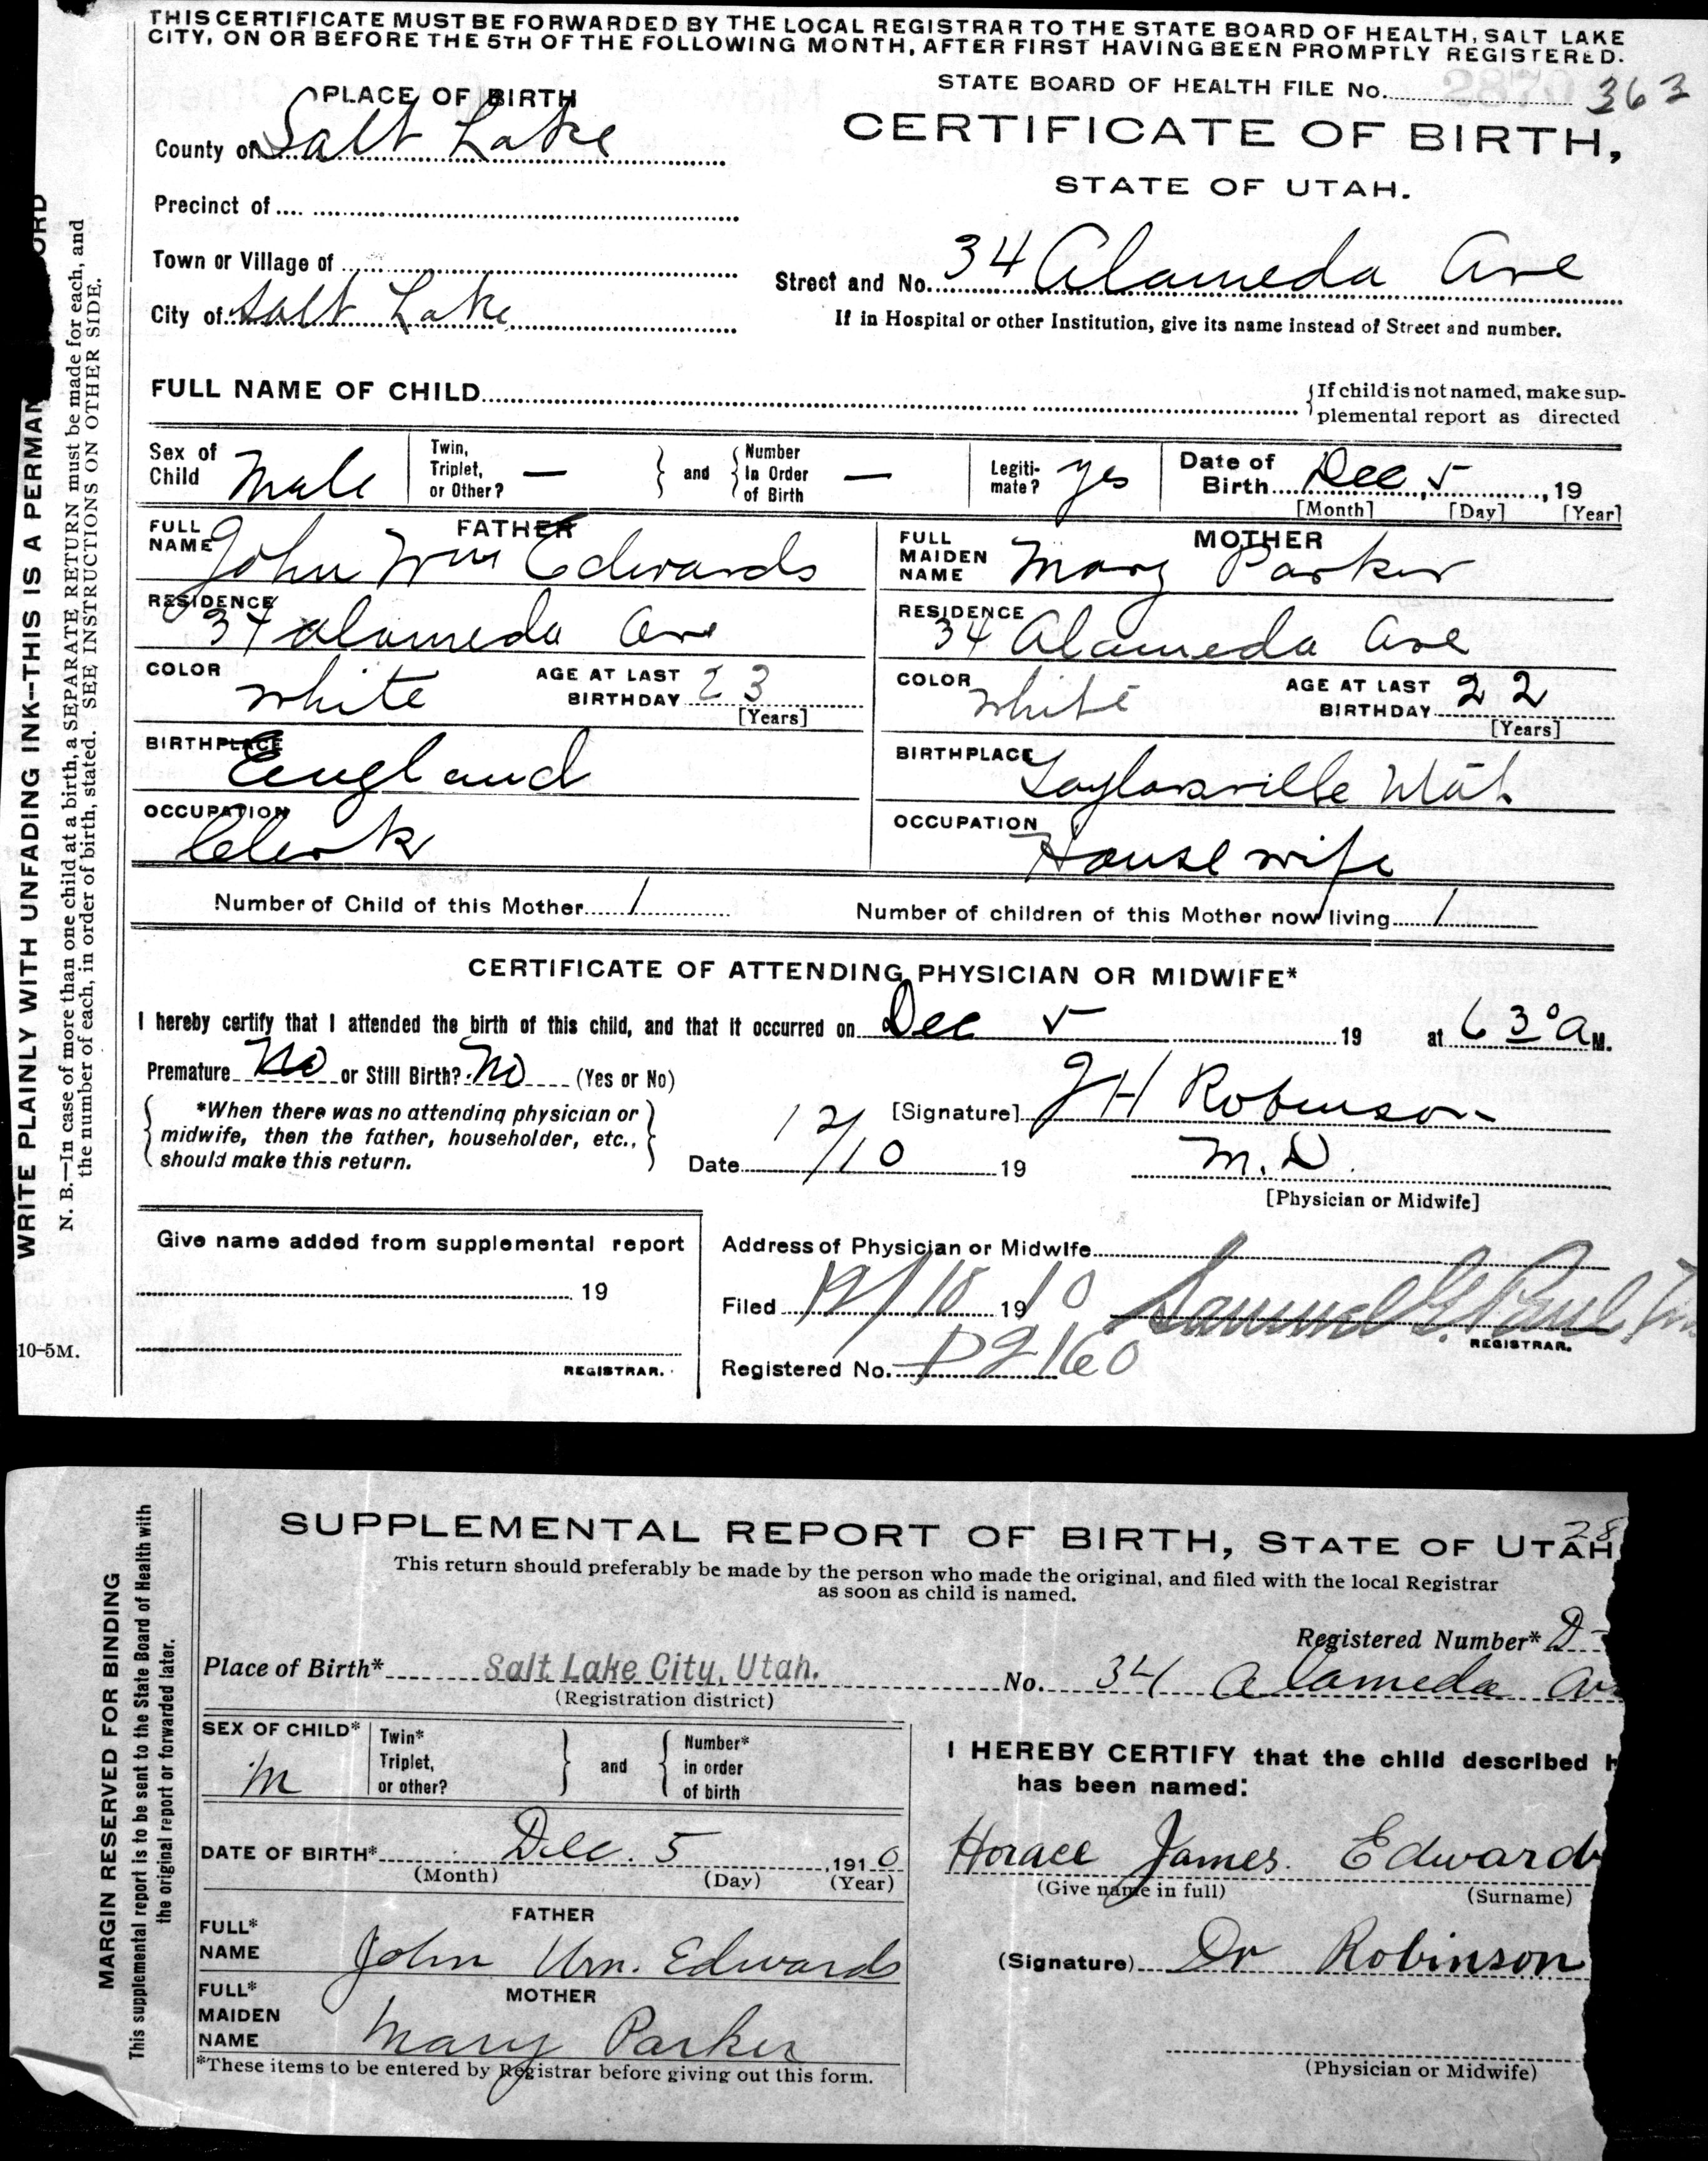 THIS CERTIFICATE MUST BE FORWARDED BY THE LOCAL REGISTRAR TO THE STATE BOARD OF HEALTH, SALT LAKE
CITY, ON OR BEFORE THE 5TH OF THE FOLLOWING MONTH, AFTER FIRST HAVING BEEN PROMPTLY REGISTERED.
STATE BOARD OF HEALTH FILE No. 363
PLACE OF BIRTH
CERTIFICATE OF BIRTH,
STATE OF UTAH.
County of Salt Lake
Precinct of
Town or Village of
Street and No. 34 Alameda Ave
City of Salt Lake
If in Hospital or other Institution, give its name instead of Street and number.
FULL NAME OF CHILD
If child is not named, make sup-
plemental report as directed
Sex of Child Male
Twin, Triplet, or Other? —
and
Number in Order of Birth —
Legiti-mate? yes
Date of Birth Dec 5, 19
[Month] [Day] [Year]
FATHER
FULL NAME John Wm Edwards
MOTHER
FULL MAIDEN NAME Mary Parker
RESIDENCE 34 Alameda Ave
RESIDENCE 34 Alameda Ave
COLOR white AGE AT LAST BIRTHDAY 23 [Years]
COLOR white AGE AT LAST BIRTHDAY 22 [Years]
BIRTHPLACE England
BIRTHPLACE Taylorsville Utah
OCCUPATION Clerk
OCCUPATION House wife
Number of Child of this Mother 1
Number of children of this Mother now living 1
CERTIFICATE OF ATTENDING PHYSICIAN OR MIDWIFE*
I hereby certify that I attended the birth of this child, and that it occurred on Dec 5 19 at 6 30 a M.
Premature No or Still Birth? No (Yes or No)
*When there was no attending physician or
midwife, then the father, householder, etc.,
should make this return.
[Signature] JH Robinson
Date 12/10 19
M.D.
[Physician or Midwife]
Give name added from supplemental report
19
REGISTRAR.
Address of Physician or Midwife
Filed 12/18 1910 Samuel G. Paul
REGISTRAR.
Registered No. D2160
10-5M.
WRITE PLAINLY WITH UNFADING INK--THIS IS A PERMAN ORD
N. B.—In case of more than one child at a birth, a SEPARATE RETURN must be made for each, and
the number of each, in order of birth, stated. SEE INSTRUCTIONS ON OTHER SIDE.
28
SUPPLEMENTAL REPORT OF BIRTH, STATE OF UTAH
This return should preferably be made by the person who made the original, and filed with the local Registrar
as soon as child is named.
Registered Number* D-
Place of Birth* Salt Lake City, Utah. No. 34 Alameda Av
(Registration district)
SEX OF CHILD* M
Twin* Triplet, or other?
and
Number* in order of birth
I HEREBY CERTIFY that the child described h
has been named:
DATE OF BIRTH* Dec. 5, 1910
(Month) (Day) (Year)
Horace James Edwards
(Give name in full) (Surname)
FATHER
FULL* NAME John Wm. Edwards
(Signature) Dr Robinson
MOTHER
FULL* MAIDEN NAME Mary Parker
(Physician or Midwife)
*These items to be entered by Registrar before giving out this form.
MARGIN RESERVED FOR BINDING
This supplemental report is to be sent to the State Board of Health with
the original report or forwarded later.